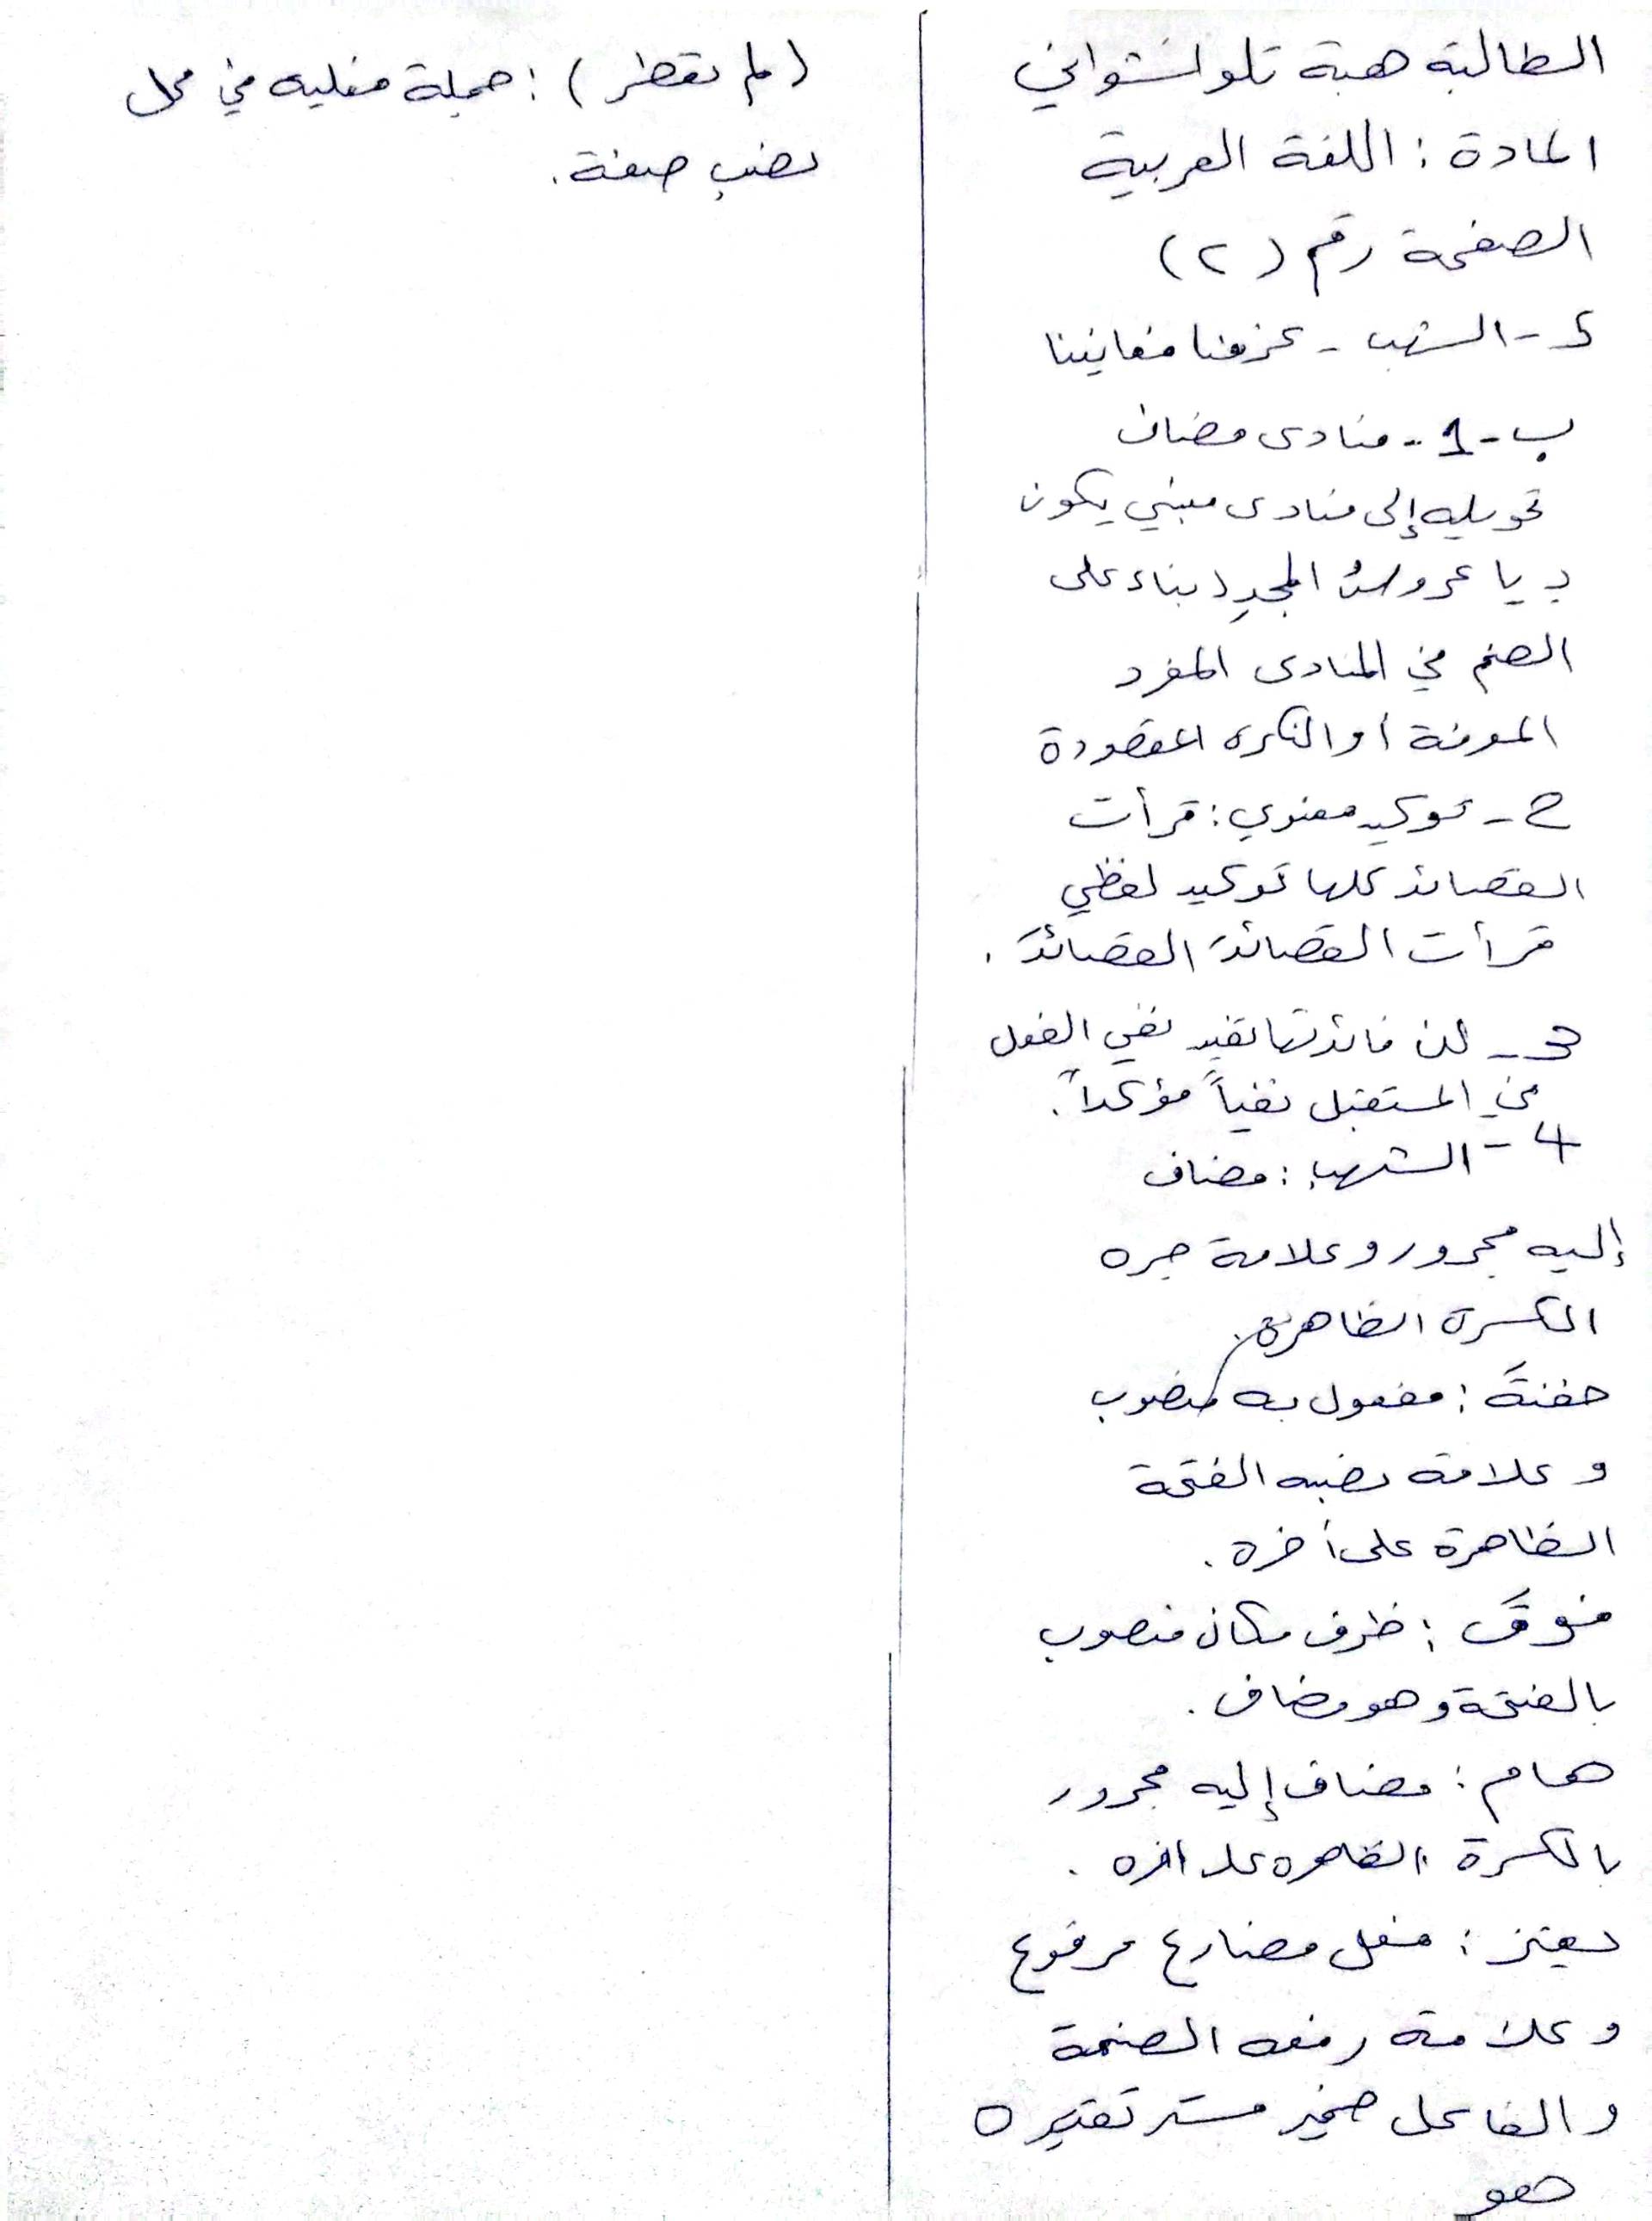 الطالبة هبة تلو انشواني
المادة : اللغة العربية
الصفحة رقم (٢)
5 - الشهب - عزفنا مغانينا
ب - 1 - منادى مضاف
تحويله إلى منادى مبني يكون
بـ يا عروسُ المجدِ ( بناء على
الضم في المنادى المفرد
المعرفة أو النكرة المقصودة
2 - توكيد معنوي : قرأت
القصائد كلها توكيد لفظي
قرأت القصائدَ القصائدَ .
3 - لن فائدتها تفيد نفي الفعل
في المستقبل نفياً مؤكداً .
4 - الشهبِ : مضاف
إليه مجرور وعلامة جره
الكسرة الظاهرة .
حفنةَ : مفعول به منصوب
وعلامة نصبه الفتحة
الظاهرة على أخره .
فوقَ : ظرف مكان منصوب
بالفتحة وهو مضاف .
همام : مضاف إليه مجرور
بالكسرة الظاهرة على اخره .
يعتز : فعل مضارع مرفوع
وعلامة رفعه الضمة
والفاعل ضمير مستتر تقديره
هو
(لم تفطر) : جملة فعليه في محل
نصب صفة .